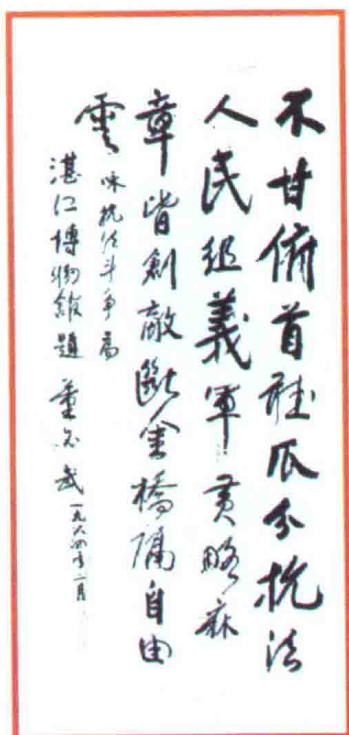 不甘俯首聽瓜分抗法
人民組義軍黃略麻
章皆創敵斷金橋隔自由
雲 咏抗法斗争為
湛江博物館題 董必武 一九六四年二月